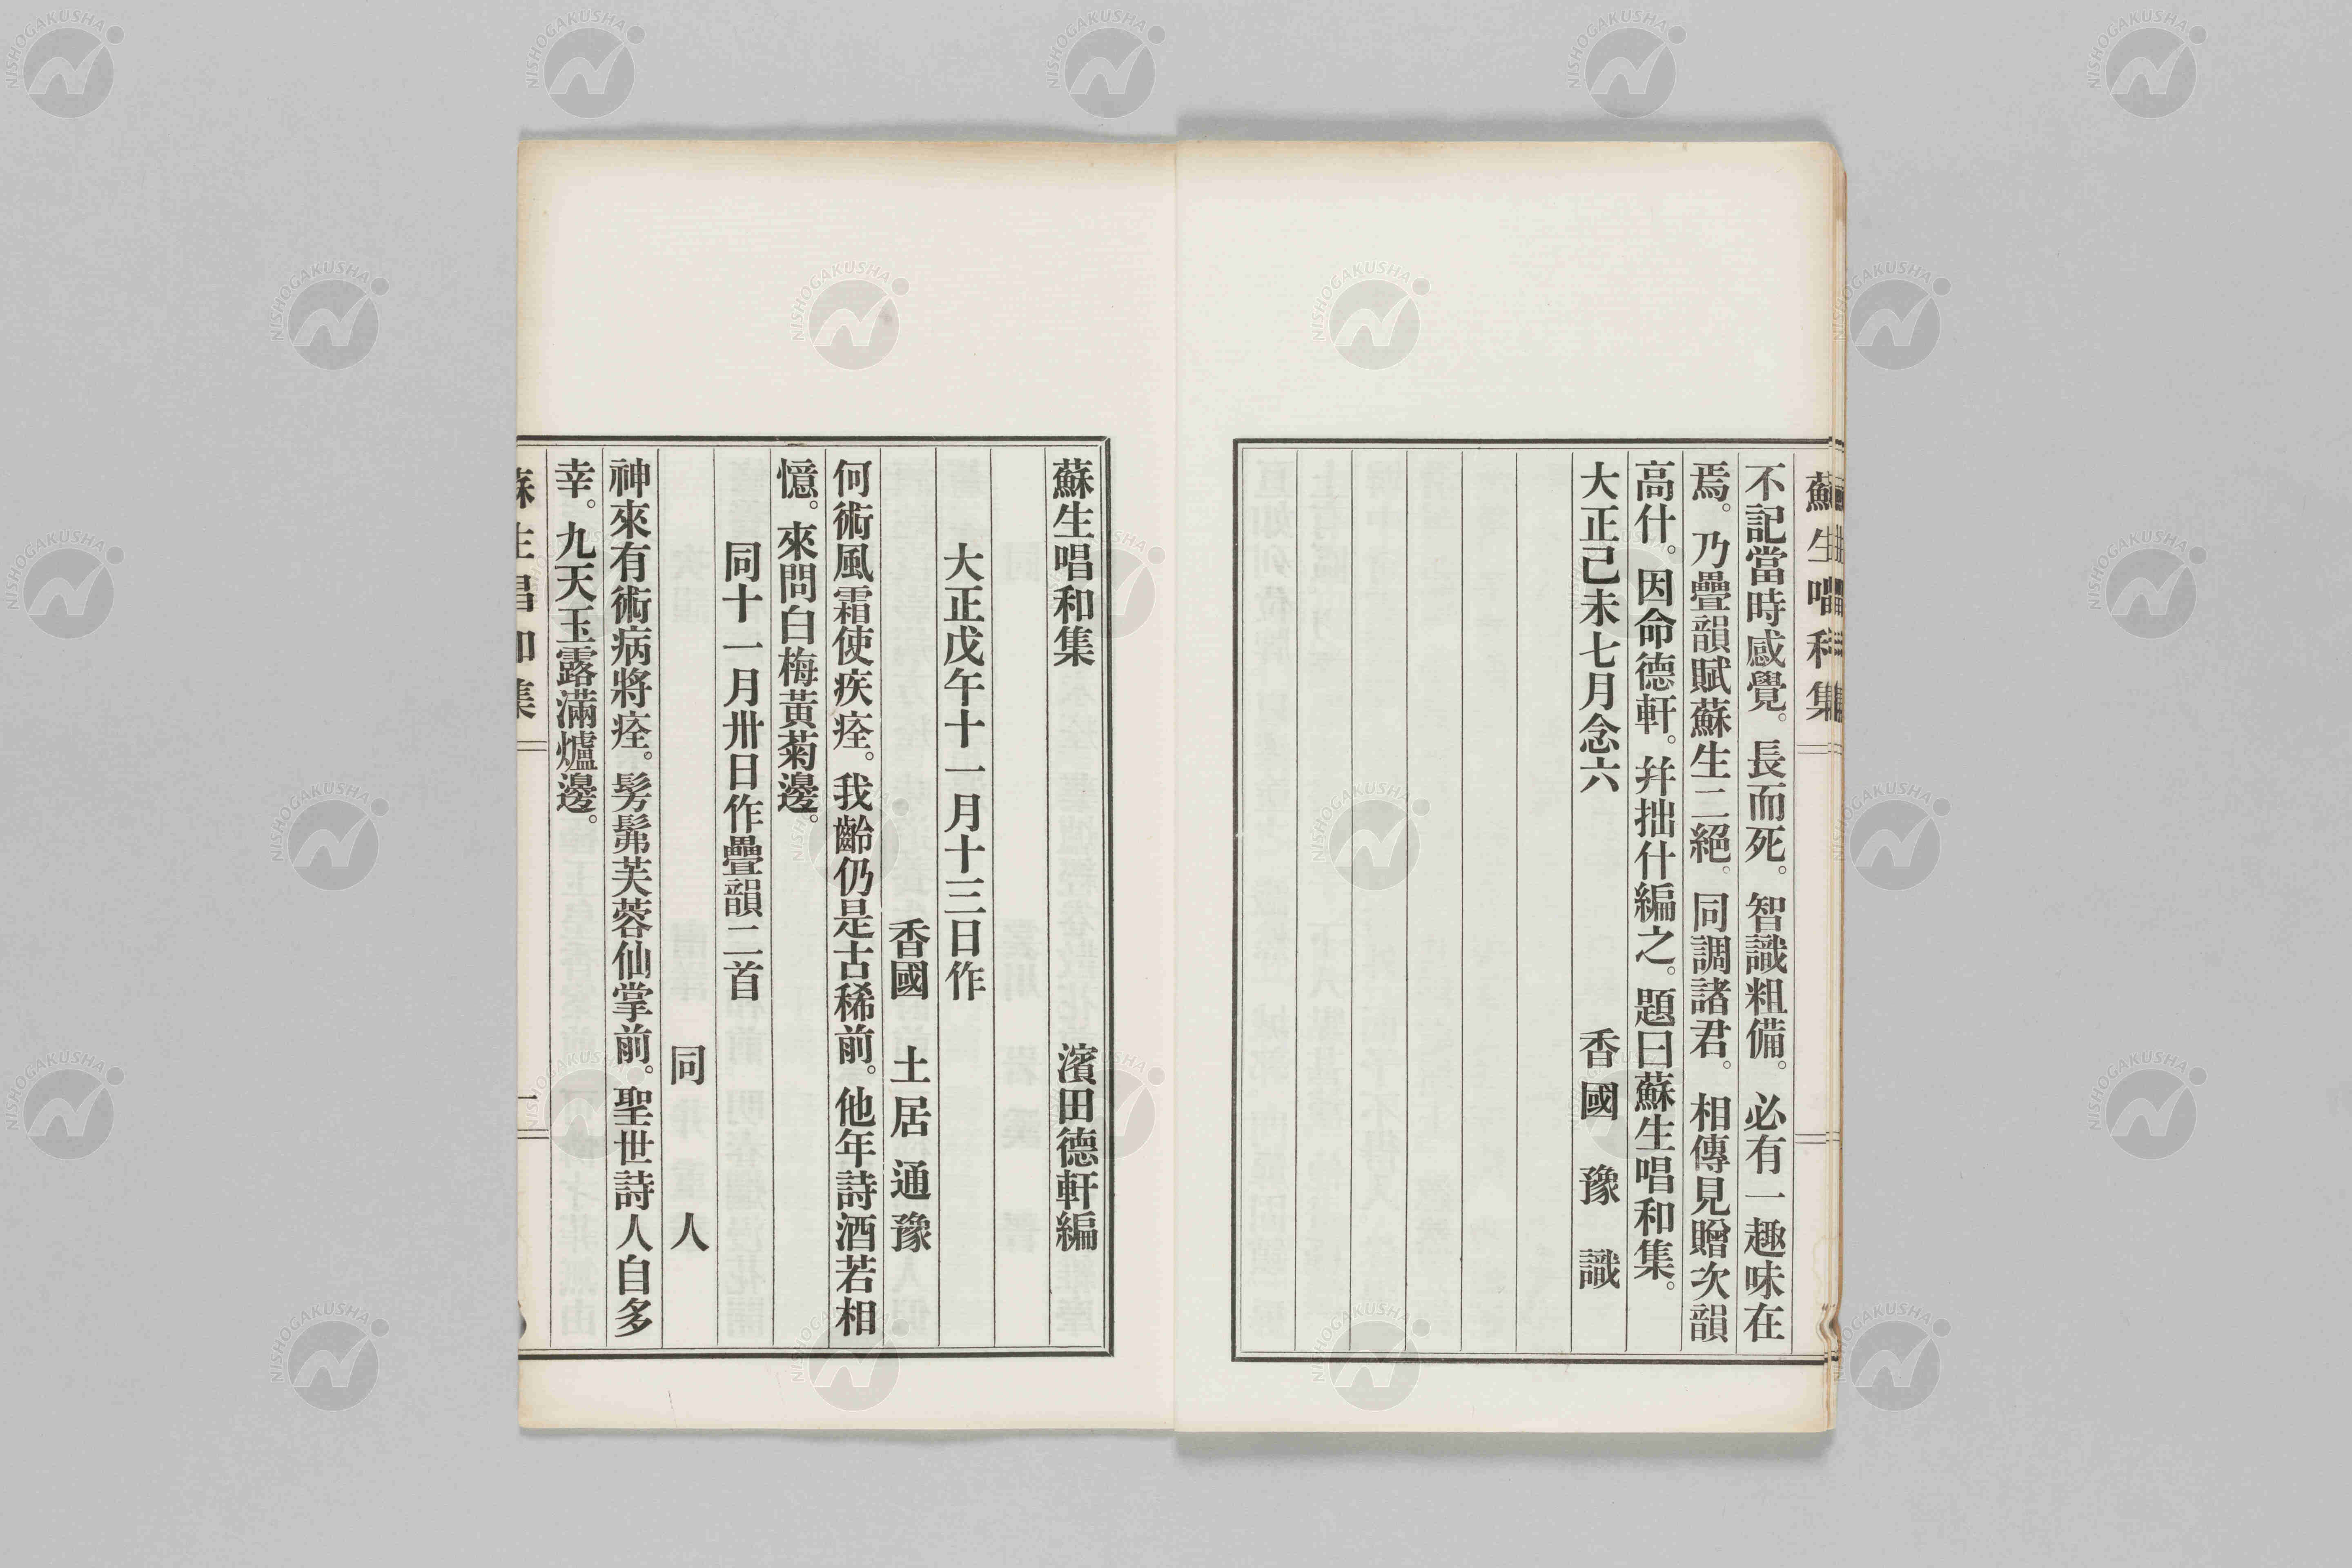 蘇生唱和集
不記當時感覺。長而死。智識粗備。必有一趣味在
焉。乃疊韻賦蘇生二絕。同調諸君。相傳見贈次韻
高什。因命德軒。幷拙什編之。題曰蘇生唱和集。
大正己未七月念六　香國　豫　識
蘇生唱和集　濱田德軒編
大正戊午十一月十三日作
香國　土居通豫
何術風霜使疾痊。我齡仍是古稀前。他年詩酒若相
憶。來問白梅黃菊邊。
同十一月卅日作疊韻二首
同　人
神來有術病將痊。髣髴芙蓉仙掌前。聖世詩人自多
幸。九天玉露滿爐邊。
蘇生唱和集　一
NISHOGAKUSHA